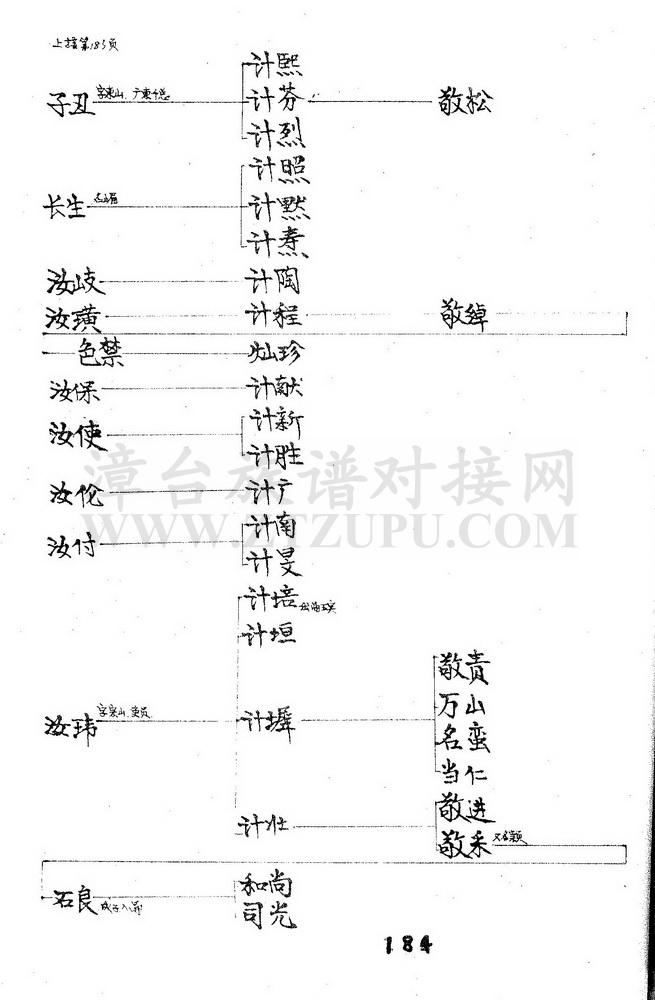 上接第183页
计熙
子丑 计芬 敬松
计烈
计照
长生 计默
计焘
汝岐 计陶
汝璜 计程 敬绰
色禁 灿珍
汝保 计献
汝使 计新
计胜
汝伦 计广
计南
汝付 计旻
计培
计垣
敬责
万山
汝玮 计墀
名蛮
当仁
敬进
计壮
敬采
石良 和尚
司光
184
漳台族谱对接网
WWW.ZTZUPU.COM